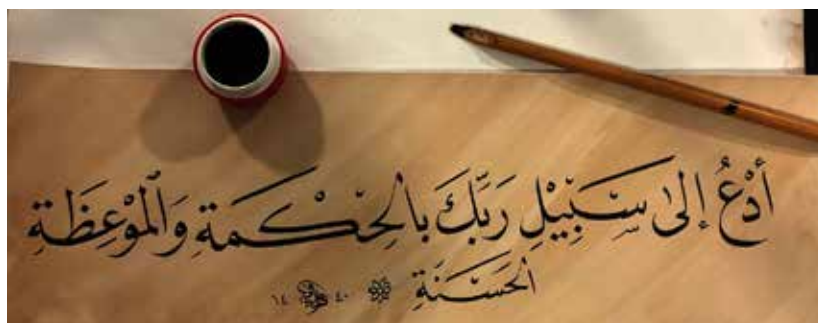 أدْعُ إلىٰ سَبِيْلِ رَبِّكَ بالْحِكْمَةِ وَالْمَوْعِظَةِ
الْحَسَنَةِ ١٤٤٠